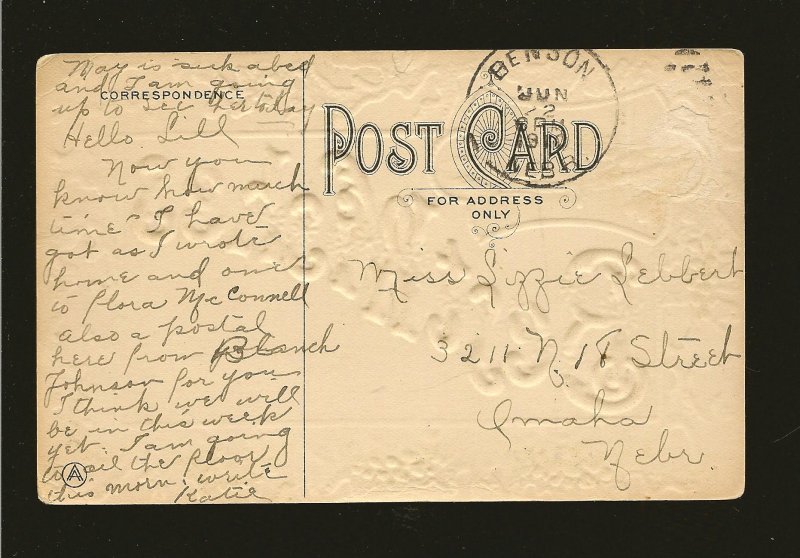 May is sick abed
and I am going
up to see her today
CORRESPONDENCE
Hello Lill
Now you
know how much
time I have
got as I wrote
home and one
to Flora McConnell
also a postal
here from Blanch
Johnson for you
I think we will
be in this week
yet. I am going
to oil the floor
this morn, write
Katie
A
POST CARD
FOR ADDRESS
ONLY
BENSON
JUN
2
NEBR
Miss Lizzie Lebbert
3211 N. 18 Street
Omaha
Nebr.